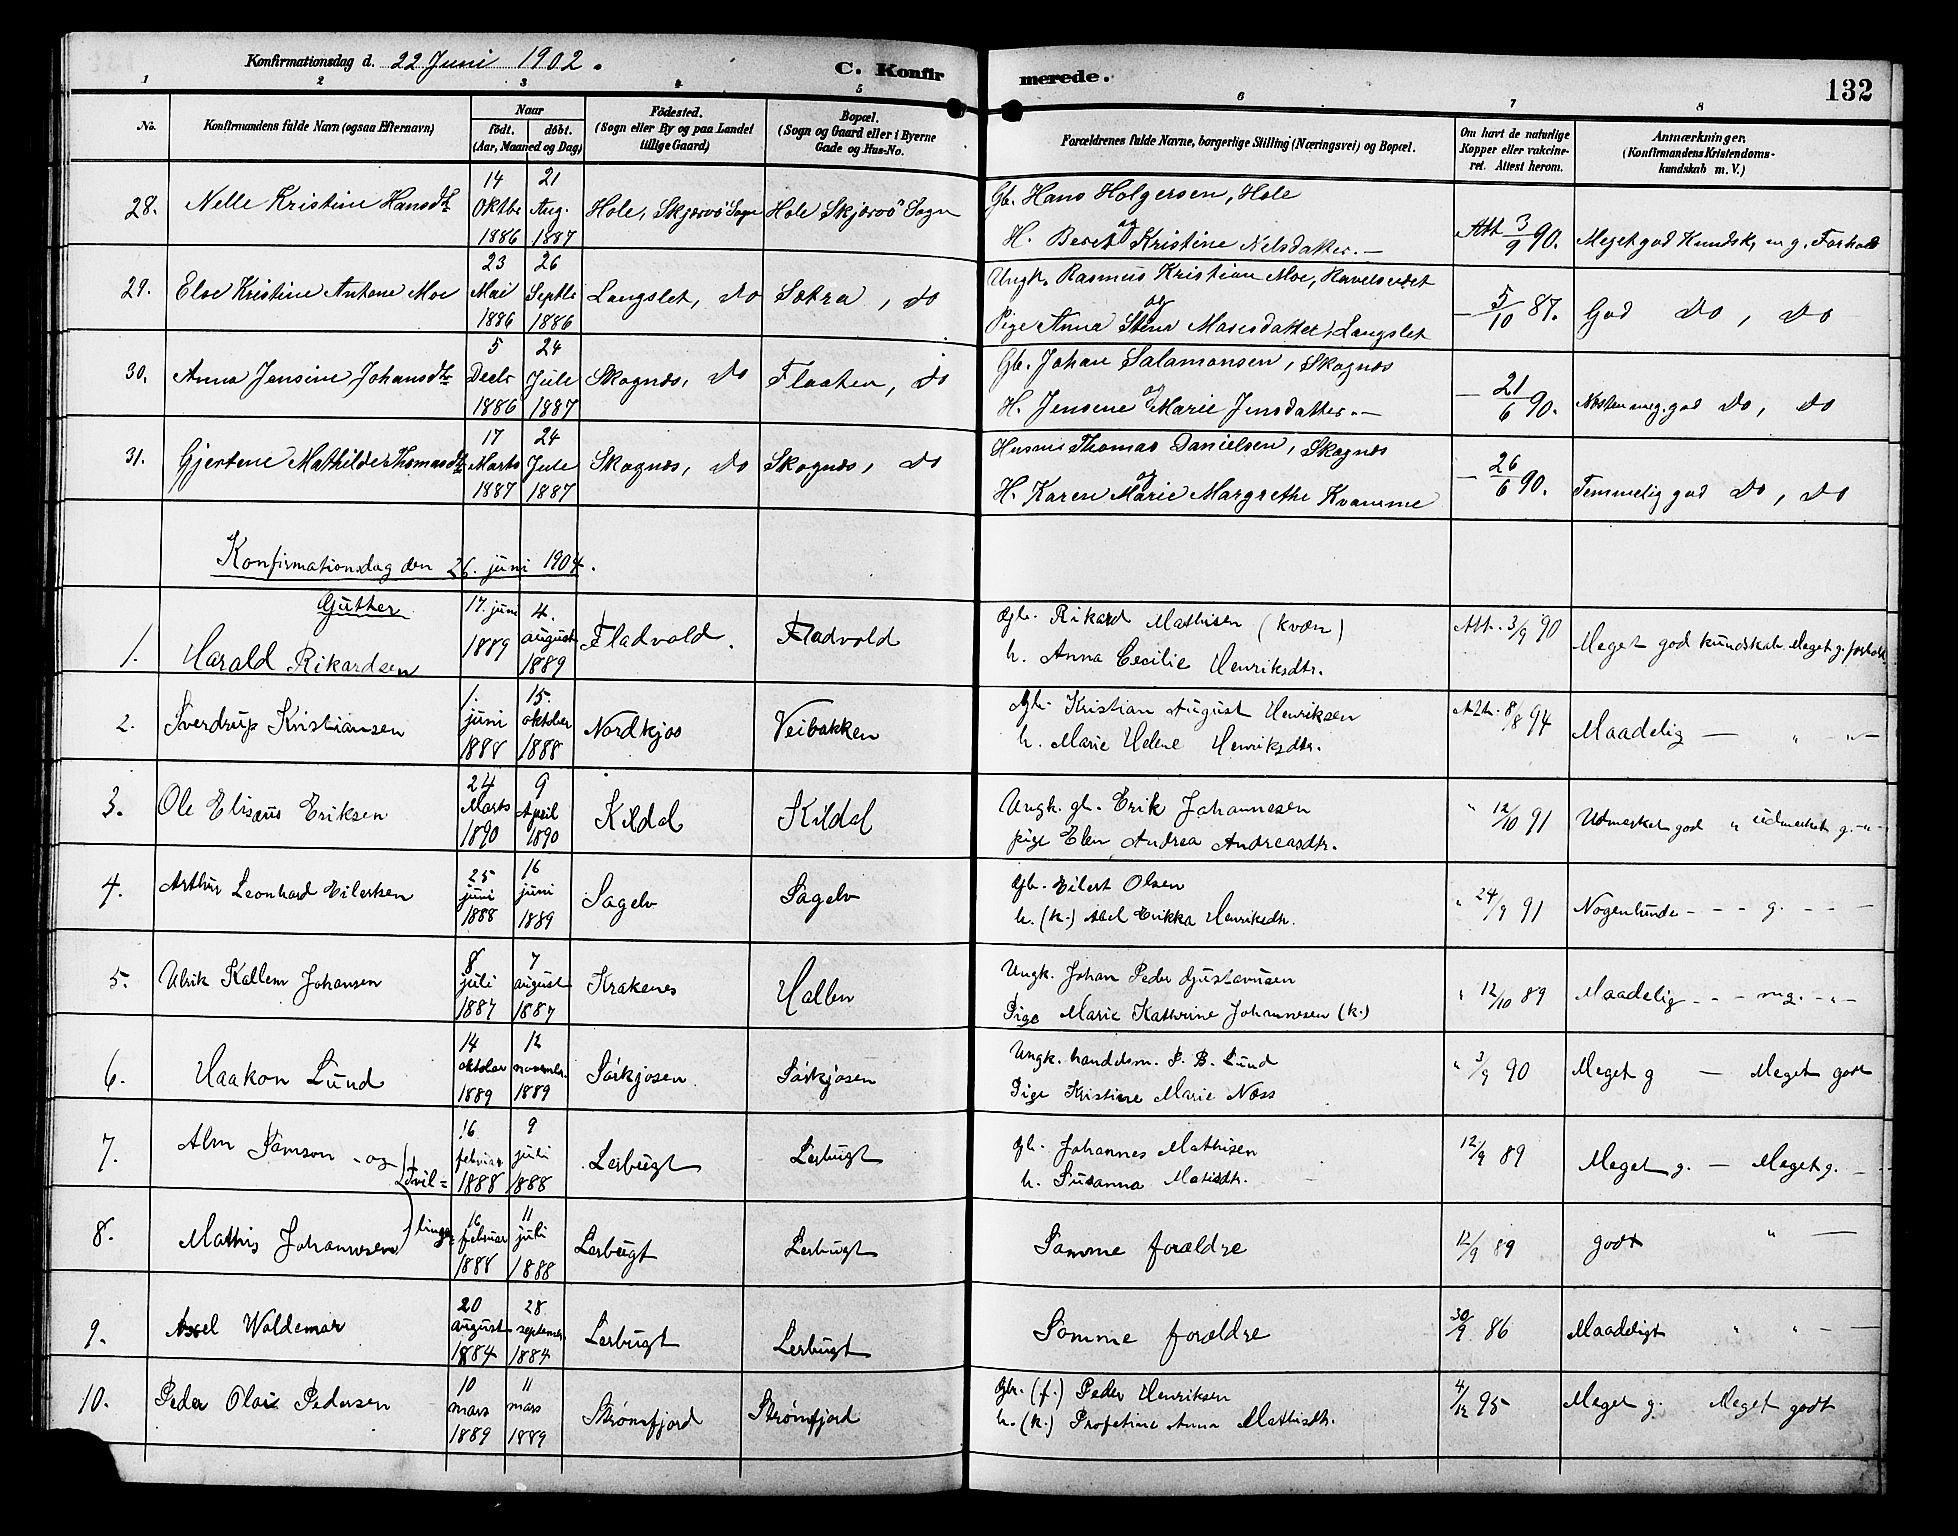 Konfirmationsdag d. 22 Juni 1902.
C. Konfirmerede.
132
1 2 3 4 5 6 7 8
No.
Konfirmandens fulde Navn (ogsaa Efternavn)
Naar
födt. döbt.
(Aar, Maaned og Dag)
Födested.
(Sogn eller By og paa Landet
tillige Gaard)
Bopæl.
(Sogn og Gaard eller i Byerne
Gade og Hus-No.
Forældrenes fulde Navne, borgerlige Stilling (Næringsvei) og Bopæl.
Om havt de naturlige
Kopper eller vakcine-
ret. Attest herom.
Anmærkninger,
(Konfirmandens Kristendoms-
kundskab m. V.)
28. Nelle Kristine Hansdtr
14 Oktbr 1886
21 Aug. 1887
Hole, Skjærvö Sogn
Hole Skjærvö Sogn
Gb. Hans Holgersen, Hole
og
H. Beret Kristine Nelsdatter. —
Att 3/9 90.
Meget god Kundsk, m g. Forhold
29. Else Kristine Antone Moe
23 Mai 1886
26 Septbr 1886
Langslet, do
Sætra, do
Ungk. Rasmus Kristian Moe, Ravelseidet
og
Pige Anna Stina Mariusdatter, Langslet
— 5/10 87.
God do, do
30. Anna Jensine Johansdtr
5 Decbr 1886
24 Jule 1887
Skognæs, do
Flaaten, do
Gb. Johan Salamonsen, Skognæs
og
H. Jensene Marie Jensdatter. —
— 21/6 90.
Næsten meg. god do, do
31. Gjertine Mathilde Thomasdtr
17 Marts 1887
24 Jule 1887
Skognæs, do
Skognæs, do
Husm. Thomas Danielsen, Skognæs
og
H. Karen Marie Margrethe Kvamme
— 26/6 90.
Temmelig god do, do
Konfirmationsdag den 26. juni 1904.
Gutter
1. Harald Rikardsen
17. juni 1889
4. august 1889
Fladvold.
Fladvold
Gb. Rikard Mathisen (kvæn)
h. Anna Cecilie Henriksdtr.
Att. 3/9 90
Meget god kundskab. Meget g. forhold
2. Sverdrup Kristiansen
1. juni 1888
15. oktober 1888
Nordkjos
Veibakken
Gb. Kristian August Henriksen
h. Marie Helene Henriksdtr.
Att. 8/8 94
Maadelig — " "—
3. Ole Elisæus Eriksen
24 Marts 1890
9 April 1890
Kildal
Kildal
Ungk. gb. Erik Johannesen
pige Elen Andrea Andreasdtr.
" 12/10 91
Udmerket god " udmerket g. -"-
4. Arthur Leonhard Eilertsen
25 juni 1888
16 juni 1889
Sagelv
Sagelv
Gb. Eilert Olsen
h. (k.) Abel Erikka Henriksdtr.
" 24/9 91
Nogenlunde - - - g. - - -
5. Ulrik Kallem Johansen
8 juli 1887
7 august 1887
Krakenes
Hallen
Ungk. Johan Peder Gustavusen
Pige Marie Kathrine Johannesen (k.)
" 12/10 89
Maadelig - - - mg. -"-
6. Haakon Lund
14 oktober 1889
12 november. 1889
Sörkjosen
Sörkjosen
Ungk. handelsm. P. B. Lund
Pige Kristine Marie Næss
" 3/9 90
Meget g — Meget godt
7. Alm Samson - og } Tvil=
16 februar 1888
9 juli 1888
Lerbugt
Lerbugt
Gb. Johannes Mathisen
h. Susanna Matisdtr.
12/9 89
Meget g. — Meget g. —
8. Mathis Johannesen } linge
16 februar 1888
11 juli 1888
Lerbugt
Lerbugt
Samme forældre
12/9 89
godt " —
9. Axel Waldemar
20 august 1884
28 septembr. 1884
Lerbugt
Lerbugt
Samme forældre
30/9 86
Maadeligt " " —
10. Peder Olai Pedersen
10 mars 1889
11 mars 1889
Strømfjord
Strømfjord
Gbr. (f.) Peder Henriksen
h. (k.) Profetine Anna Mathisdtr.
4/12 95
Meget g. Meget godt